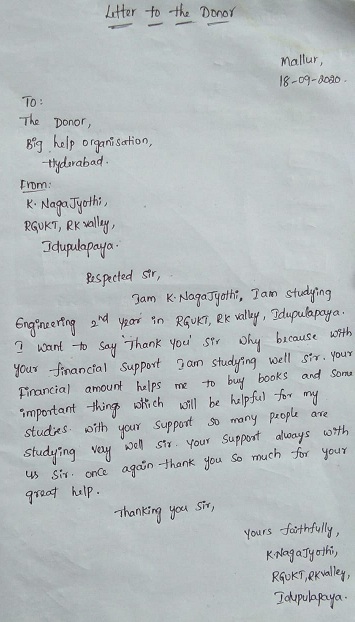 Letter to the Donor
Mallur,
18-09-2020.
To:
The Donor,
Big help organisation,
Hyderabad.
From:
K. NagaJyothi,
RGUKT, RK valley,
Idupulapaya.
Respected Sir,
Iam K. NagaJyothi, Iam studying
Engineering 2nd year in RGUKT, RK valley, Idupulapaya.
I want to say 'Thank you' sir why because with
your financial support Iam studying well sir. your
Financial amount helps me to buy books and some
important things which will be helpful for my
studies. with your support so many people are
studying very well sir. your support always with
us sir. once again thank you so much for your
great help.
Thanking you sir,
Yours faithfully,
K.NagaJyothi,
RGUKT, RKvalley,
Idupulapaya.